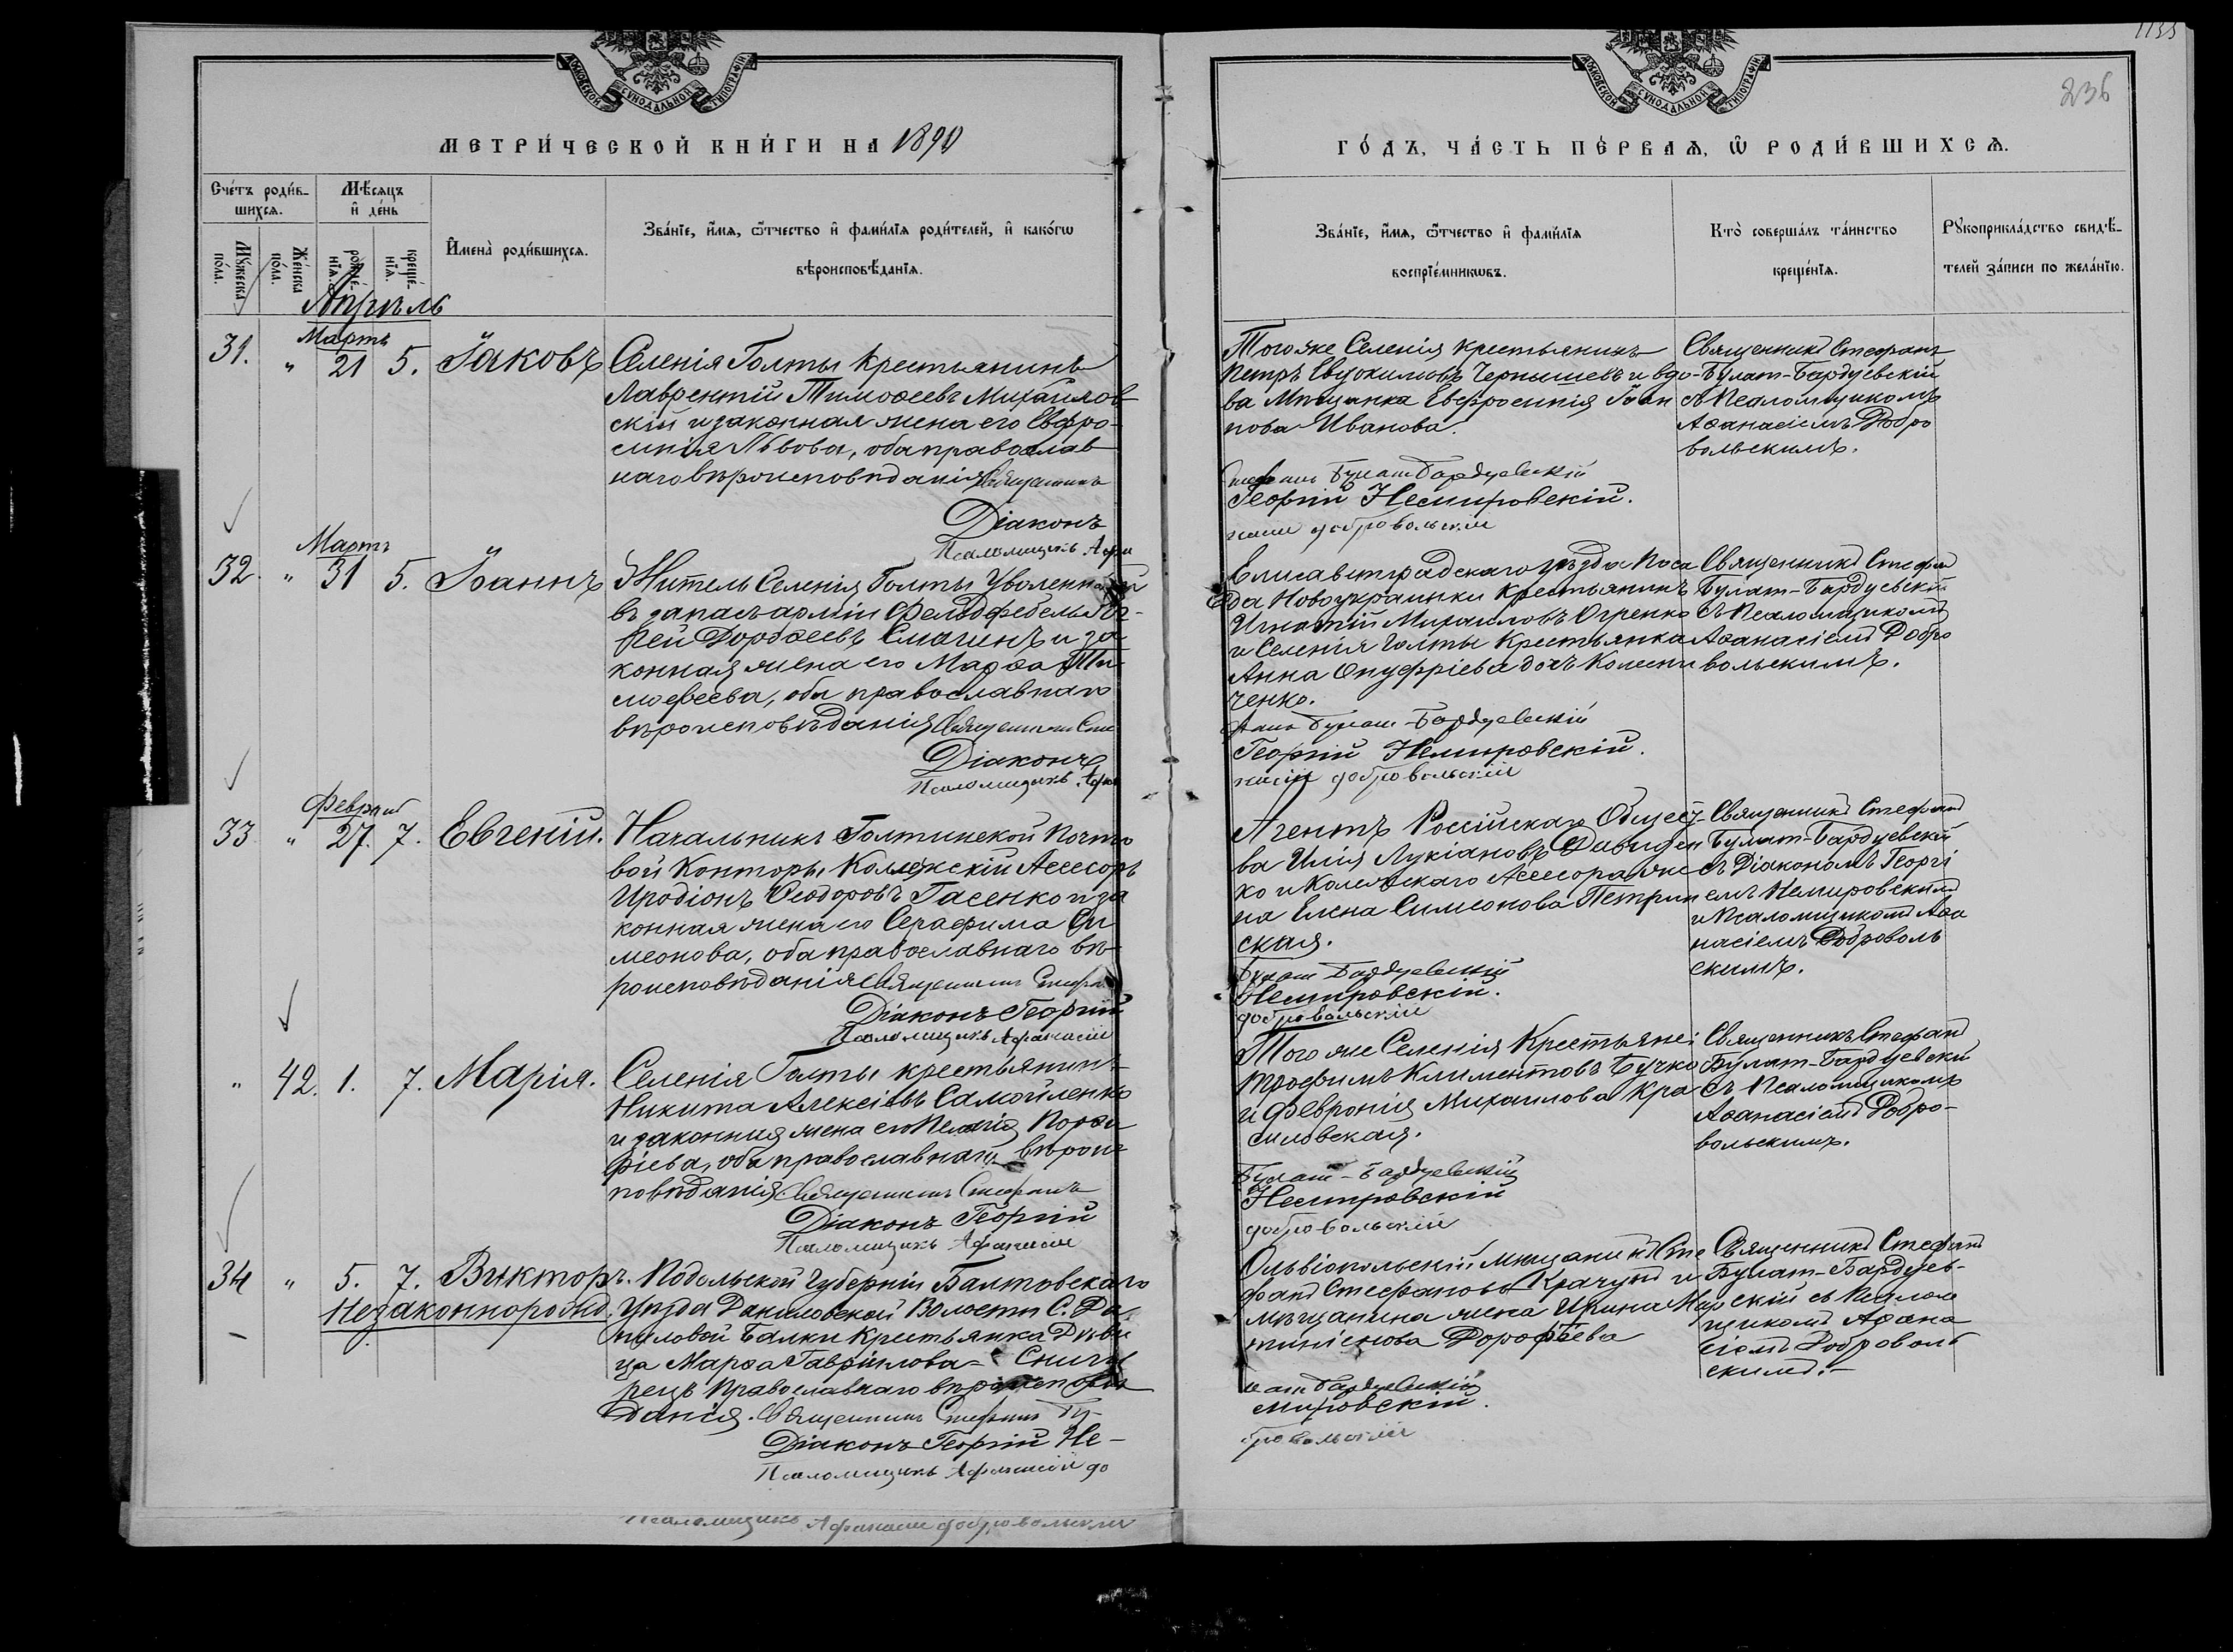 1133
236
МОСКОВСКОЙ СѴНОДАЛЬНОЙ ТИПОГРАФІИ
МОСКОВСКОЙ СѴНОДАЛЬНОЙ ТИПОГРАФІИ
МЕТРИ́ЧЕСКОЙ КНИ́ГИ НА 1890
ГО́ДЪ, ЧА́СТЬ ПЕ́РВАѦ, Ѡ РОДИ́ВШИХСѦ.
Сче́тъ роди́в-
шихсѧ.
Мꙋжеска по́ла.
Же́нска по́ла.
Мѣ́сѧцъ
и҆ де́нь
рожде́-
нїѧ.
креще́-
нїѧ.
И҆мена̀ роди́вшихсѧ.
Зва́нїе, и҆́мѧ, ѻ҆́тчество и҆ фами́лїѧ роди́телей, и҆ како́гѡ
вѣроисповѣ́данїѧ.
Зва́нїе, и҆́мѧ, ѻ҆́тчество и҆ фами́лїѧ
воспрїе́мникѡвъ.
Кто̀ соверша́лъ та́инство
креще́нїѧ.
Рꙋкоприкла́дство свидѣ́-
телей за́писи по жела́нїю.
Апрѣль
31.
Мартъ
" 21 5.
Іаковъ
Селенія Голты крестьянинъ
Лаврентій Тимоѳеевъ Михайлов
скій и законная жена его Евфро-
синія Львова, оба православ
наго вѣроисповѣданія Священникъ
Діаконъ
Псаломщикъ Афа
Тогоже Селенія крестьянинъ
Петръ Евдокимовъ Чернышевъ и вдо-
ва Мѣщанка Евфросинія Іоан
нова Иванова.
Стефанъ Булат Бардуевскій
Георгій Немировскій.
насій добровольскій
Священникъ Стефанъ
Булат-Бардуевскій
съ Псаломщикомъ
Аѳанасіемъ Добро
вольскимъ.
32.
Мартъ
" 31 5.
Іоаннъ
Житель Селенія Голты Уволенный
въ запасъ арміи Фельдфебель
Дороѳеевъ Смагинъ и за
конная жена его Марѳа Ти-
моѳеева, оба православнаго
вѣроисповѣданія Священникъ Сте
Діаконъ
Псаломщикъ Афа
Елисаветградскаго уѣзда Поса
да Новоукраинки крестьянинъ
Игнатій Михаиловъ Огренко
и Селенія Голты Крестьянка
Анна Онуфріева дочъ Колесни
ченко.
фанъ Булат-Бардуевскій
Георгій Немировскій.
насій добровольскій
Священникъ Стефан
Булат-Бардуевскій
съ Псаломщикомъ
Аѳанасіемъ Добро
вольскимъ.
33
Февраль
" 27. 7.
Евгеній.
Начальникъ Голтинской Почто
вой Конторы, Коллежскій Ассесоръ
Иродіонъ Ѳеодоровъ Гасенко и за
конная жена его Серафима Си
меонова, оба православнаго вѣ-
роисповѣданія Священникъ Стефан
Діаконъ Георгій
Псаломщикъ Афанасій
Агентъ Россійскаго Общест-
ва Илія Лукіановъ Давиден
ко и Колежскаго Ассесора же
на Елена Симеонова Петрин
ская.
Булат Бардуевскій
Немировскій.
добровольскій
Священникъ Стефанъ
Булат-Бардуевскій
съ Діакономъ Георгі
емъ Немировскимъ
и Псаломщикомъ Аѳа
насіемъ Доброволь
скимъ.
" 42. 1. 7.
Марія.
Селенія Голты крестьянинъ
Никита Алексіевъ Самойленко
и законная жена его Пелагія Порфи
ріева, оба православнаго вѣроис
повѣданія. Священникъ Стефанъ
Діаконъ Георгій
Псаломщикъ Афанасій
Того же Селенія Крестьяне:
Трофимъ Климентовъ Бучко
и Февронія Михаилова Кра
силовская.
Булат-Бардуевскій
Немировскій
добровольскій
Священникъ Стефанъ
Булат-Бардуевскій
съ Псаломщикомъ
Аѳанасіемъ Добро-
вольскимъ.
34 " 5. 7.
Викторъ.
Незаконнорожд.
Подольской Губерніи Балтовскаго
Уѣзда Даниловской Волости С. Да
ниловой Балки Крестьянка Дѣви
ца Марѳа Гаврилова Снигу
рецъ Православнаго вѣроисповѣ
данія. Священникъ Стефанъ Бу-
Діаконъ Георгій Не-
Псаломщикъ Афанасій до
Ольвіопольскій мѣщанинъ Сте
фанъ Стефановъ Крачунъ и
мѣщанина жена Ирина
Дорофѣева
лат Бардуевскій
мировскій.
бровольскій
Священникъ Стефанъ
Булат-Бардуев-
скій съ Псалом
щикомъ Аѳана
сіемъ Доброволь
скимъ.
Псаломщикъ Афанасій добровольскій